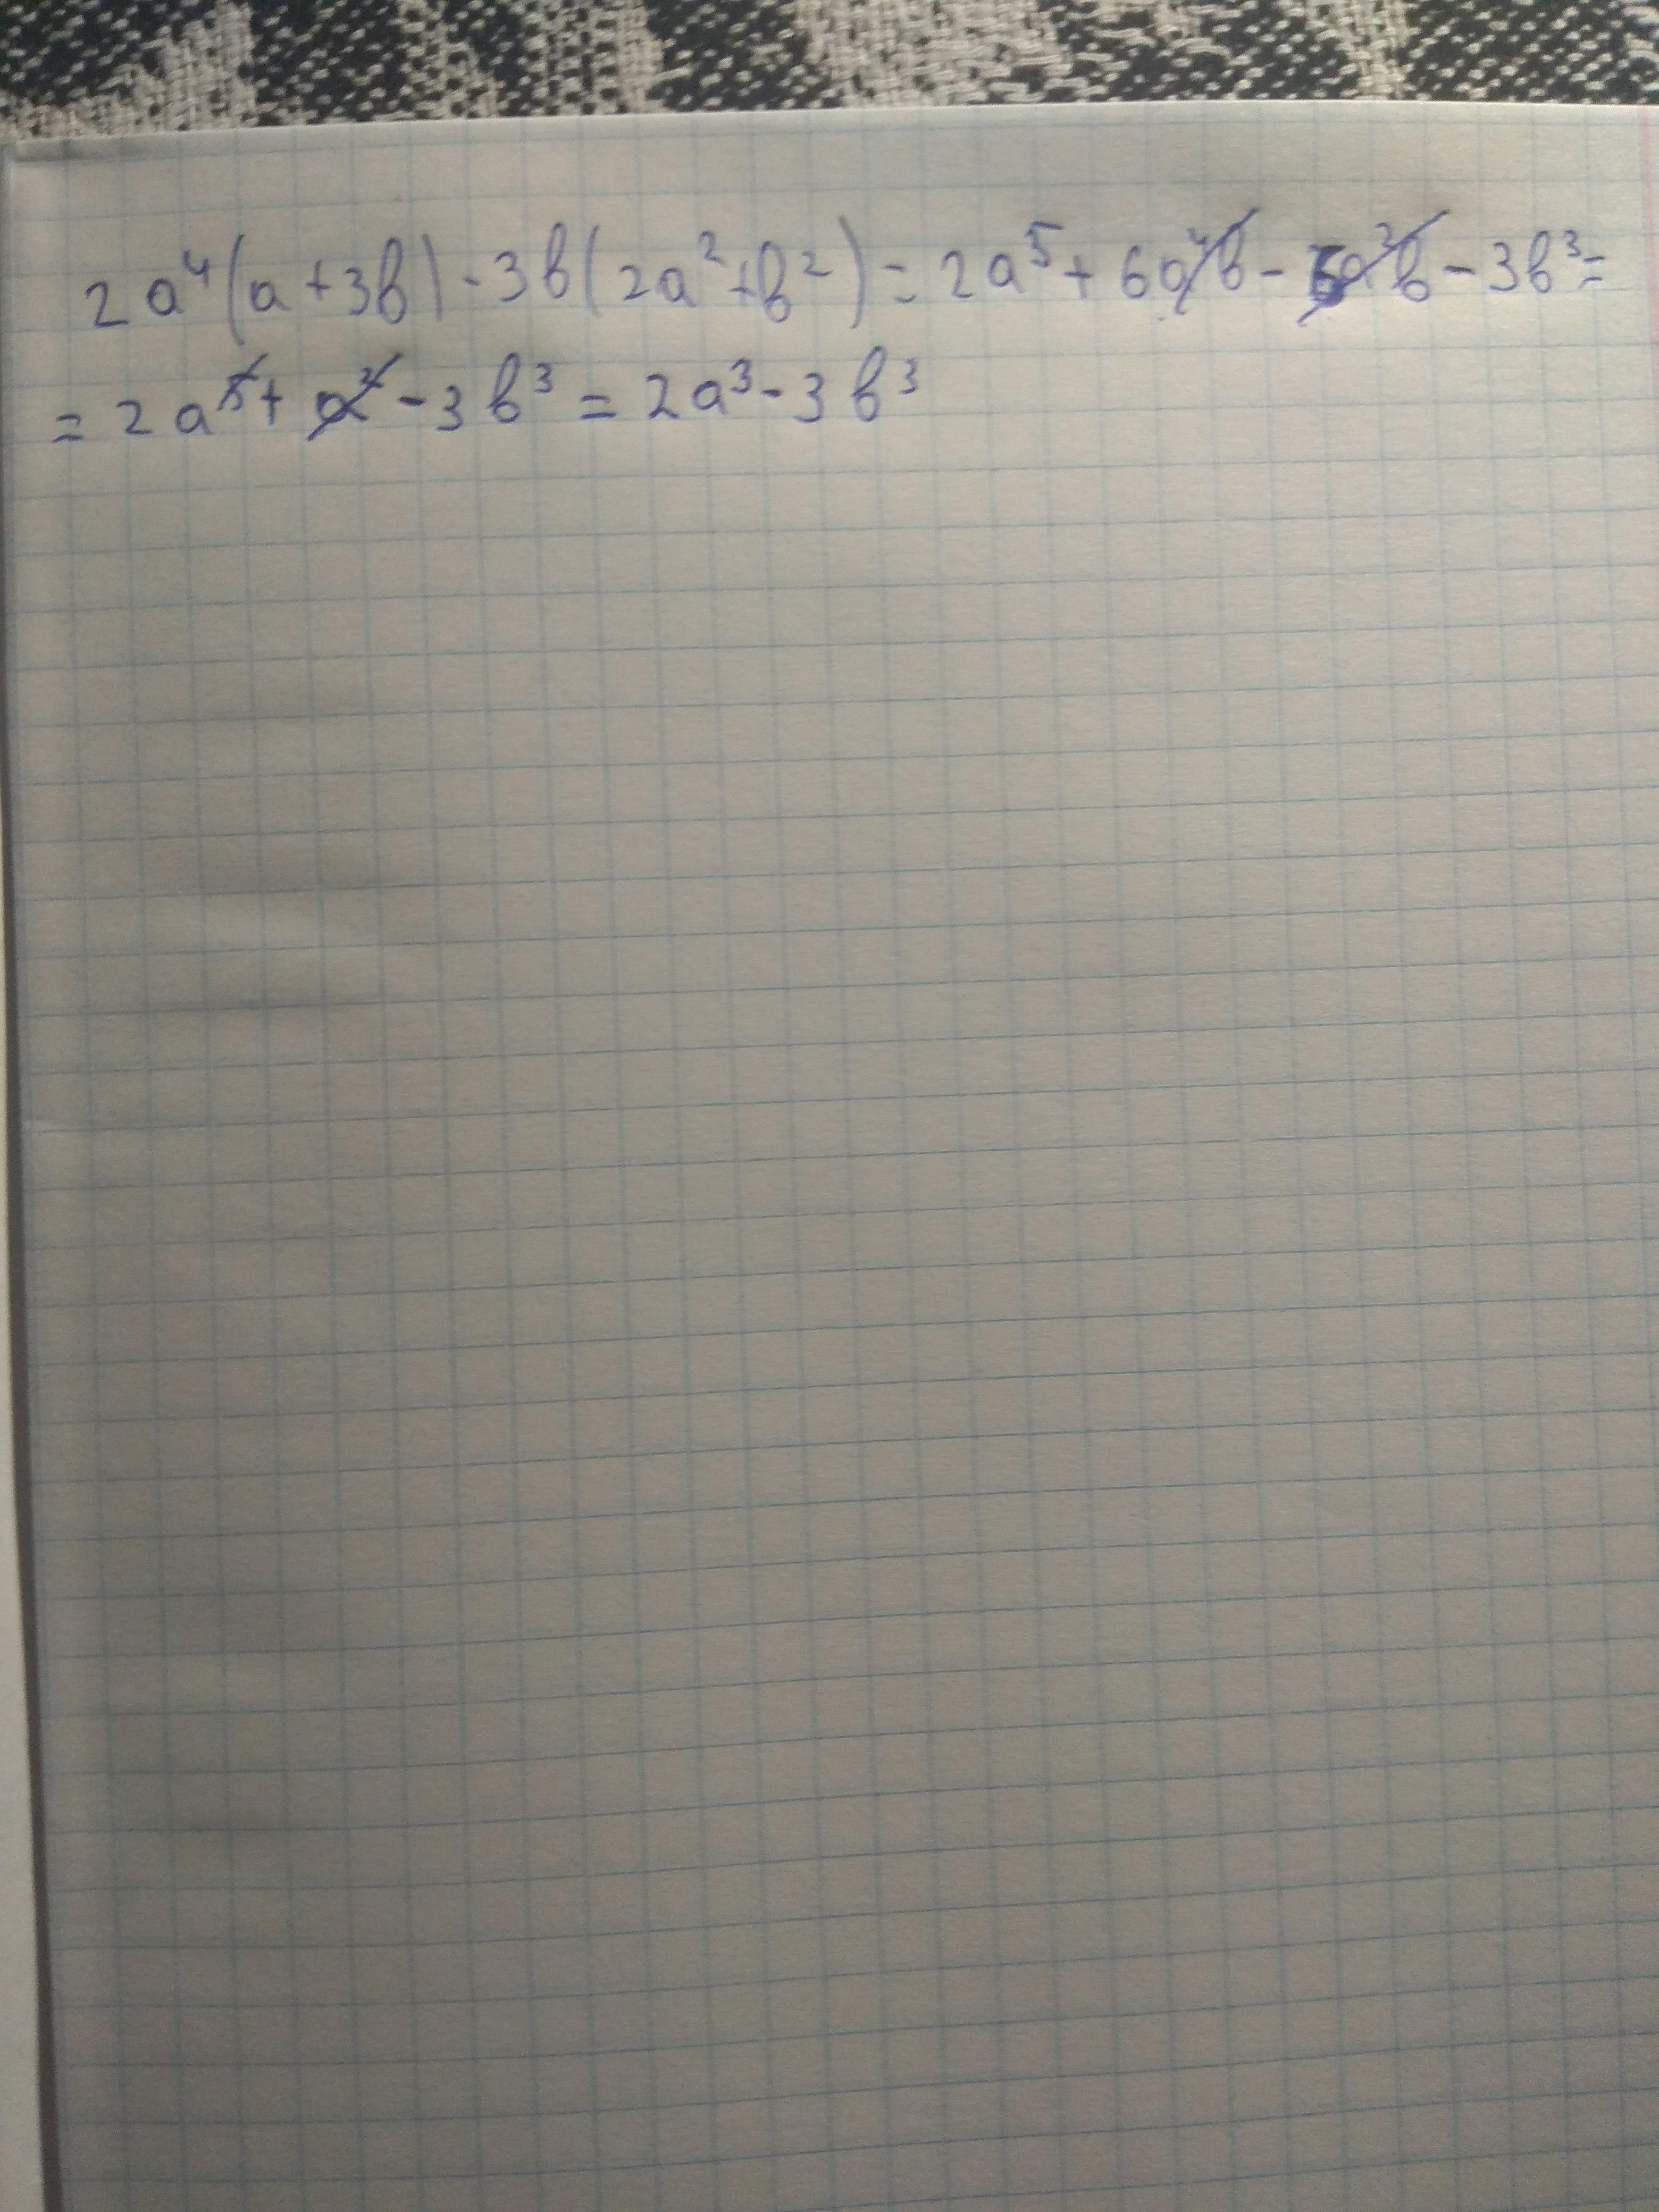 2a⁴(a+3b)-3b(2a²+b²)=2a⁵+6a⁴b-6a²b-3b³=
=2a⁵+a²-3b³=2a³-3b³